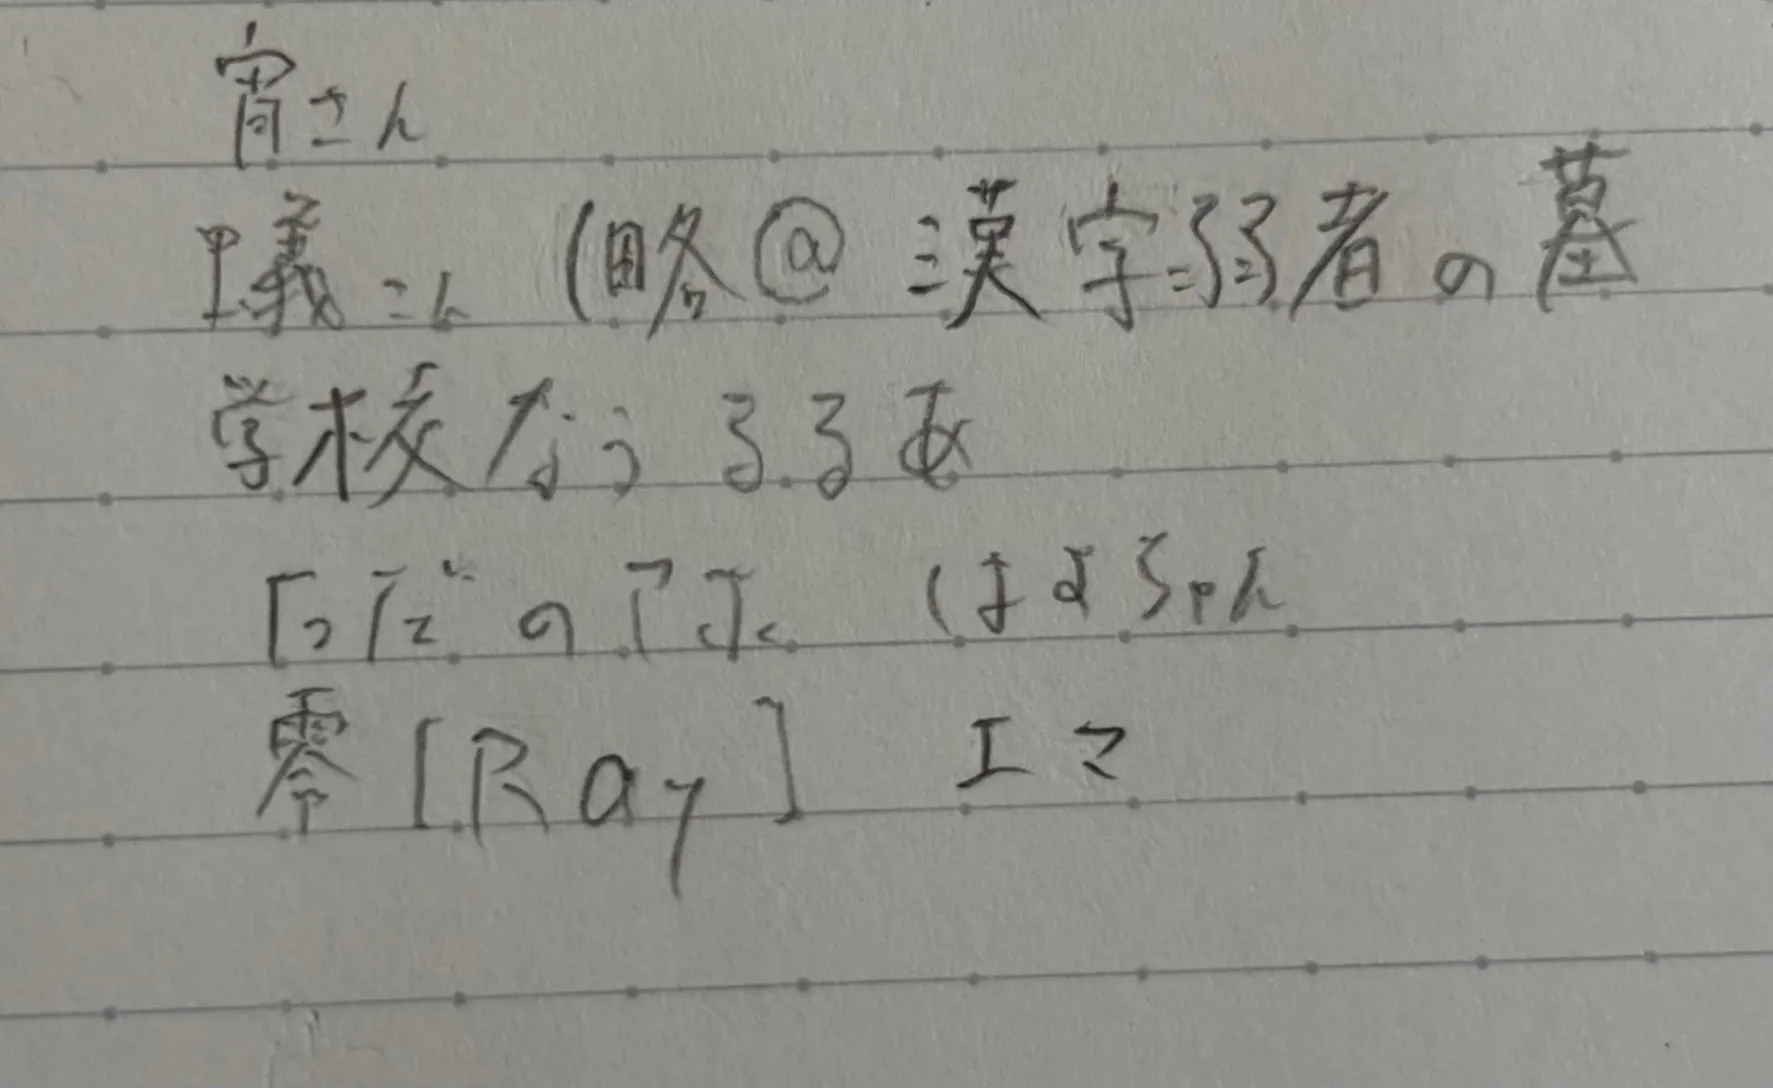 宵さん
曦さん (略@漢字弱者の墓
学校なうるるあ
はよちゃん
零[Ray] エマ